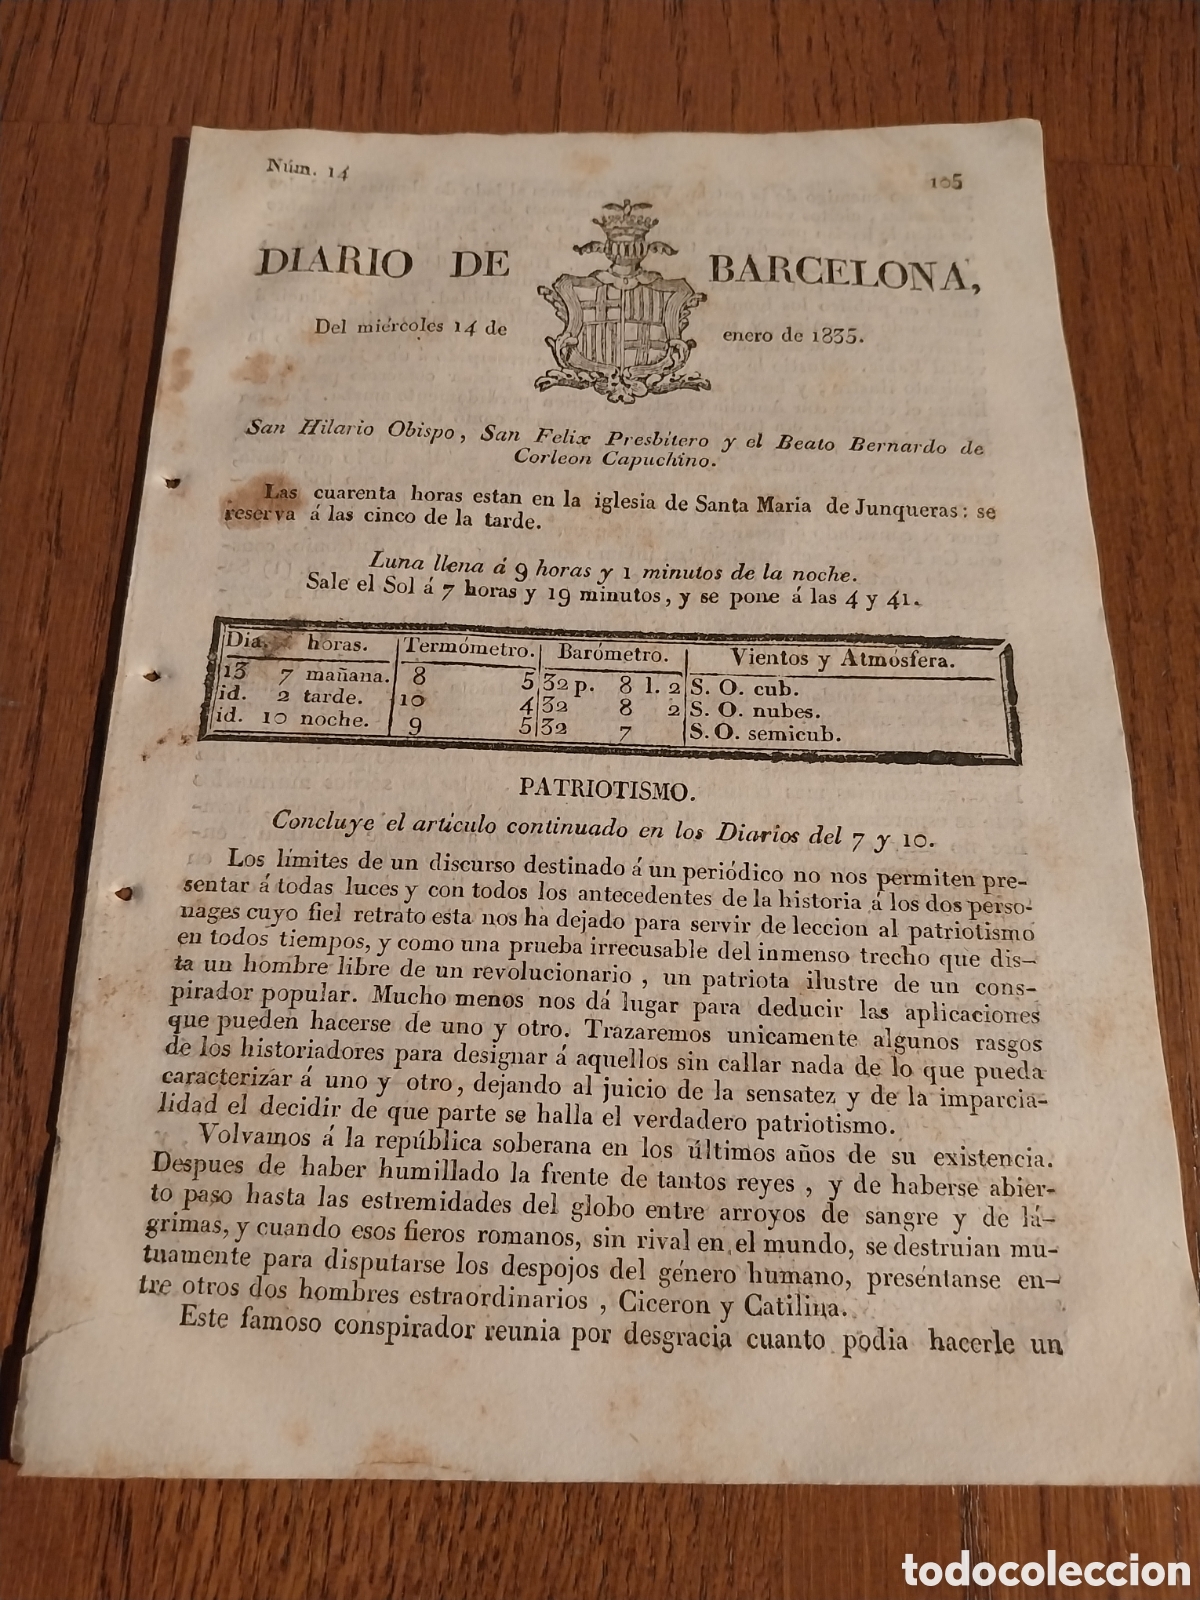 Núm. 14
105
DIARIO DE BARCELONA,
Del miércoles 14 de enero de 1835.
San Hilario Obispo, San Felix Presbitero y el Beato Bernardo de
Corleon Capuchino.
Las cuarenta horas estan en la iglesia de Santa Maria de Junqueras: se
reserva á las cinco de la tarde.
Luna llena á 9 horas y 1 minutos de la noche.
Sale el Sol á 7 horas y 19 minutos, y se pone á las 4 y 41.
Dia. horas. Termómetro. Barómetro. Vientos y Atmósfera.
13 7 mañana. 8 5 32 p. 8 l. 2 S. O. cub.
id. 2 tarde. 10 4 32 8 2 S. O. nubes.
id. 10 noche. 9 5 32 7 S. O. semicub.
PATRIOTISMO.
Concluye el artículo continuado en los Diarios del 7 y 10.
Los límites de un discurso destinado á un periódico no nos permiten pre-
sentar á todas luces y con todos los antecedentes de la historia á los dos perso-
nages cuyo fiel retrato esta nos ha dejado para servir de leccion al patriotismo
en todos tiempos, y como una prueba irrecusable del inmenso trecho que dis-
ta un hombre libre de un revolucionario, un patriota ilustre de un cons-
pirador popular. Mucho menos nos dá lugar para deducir las aplicaciones
que pueden hacerse de uno y otro. Trazaremos unicamente algunos rasgos
de los historiadores para designar á aquellos sin callar nada de lo que pueda
caracterizar á uno y otro, dejando al juicio de la sensatez y de la imparcia-
lidad el decidir de que parte se halla el verdadero patriotismo.
Volvamos á la república soberana en los últimos años de su existencia.
Despues de haber humillado la frente de tantos reyes, y de haberse abier-
to paso hasta las estremidades del globo entre arroyos de sangre y de lá-
grimas, y cuando esos fieros romanos, sin rival en el mundo, se destruian mu-
tuamente para disputarse los despojos del género humano, preséntanse en-
tre otros dos hombres estraordinarios, Ciceron y Catilina.
Este famoso conspirador reunia por desgracia cuanto podia hacerle un
todocoleccion